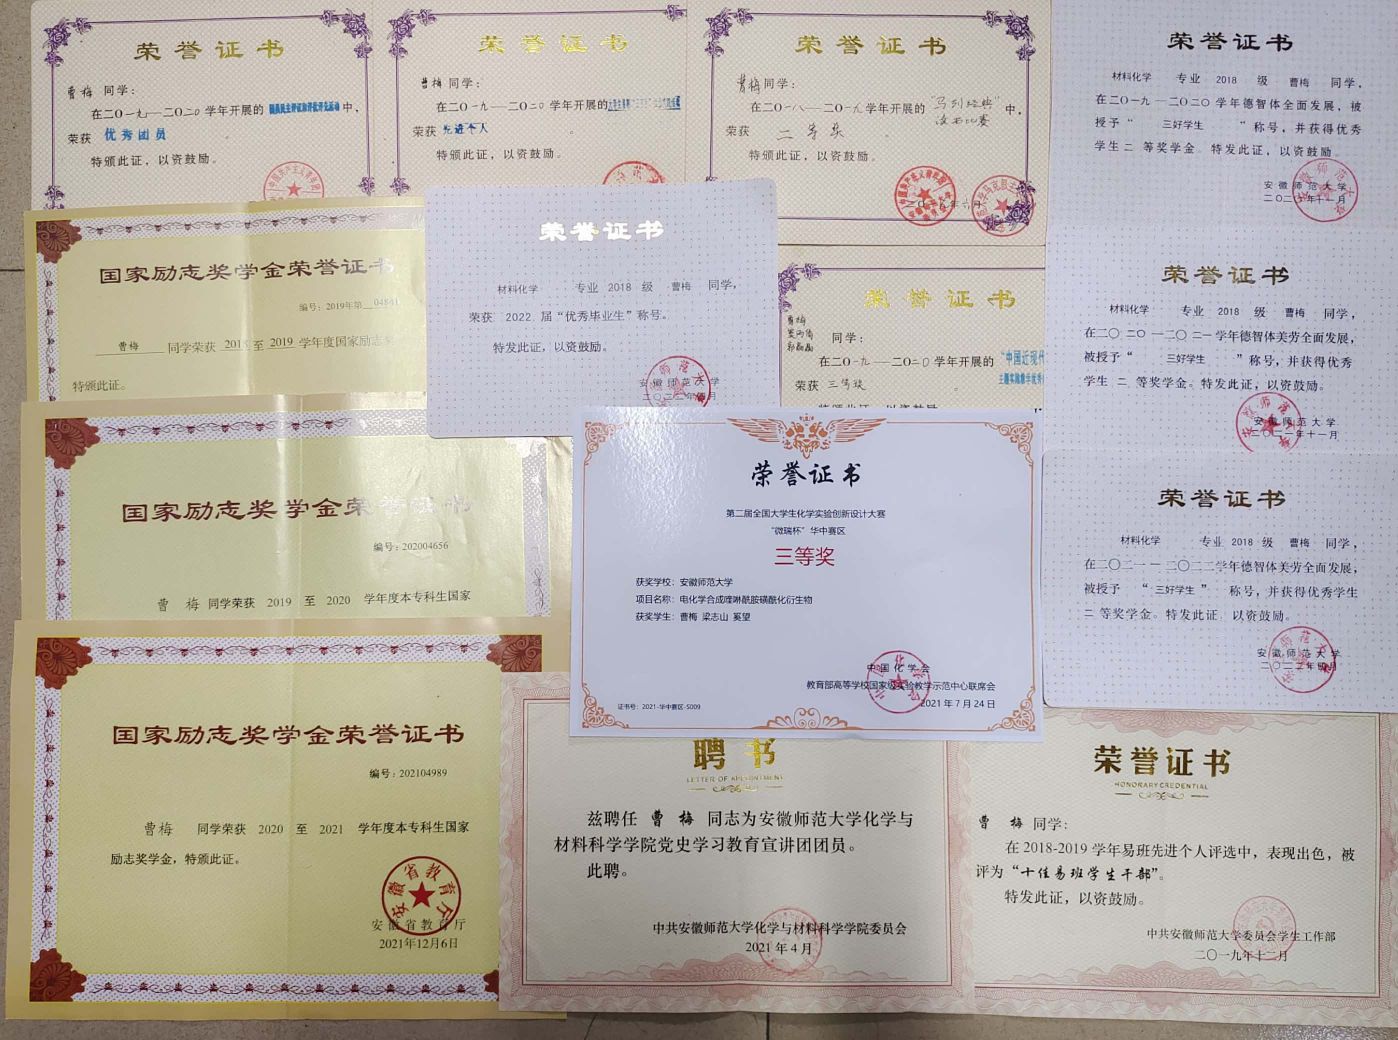 荣誉证书
曹梅 同学：
在二〇一九—二〇二〇学年开展的
中，
荣获 优秀团员 。
特颁此证，以资鼓励。
荣誉证书
曹梅 同学：
在二〇一九—二〇二〇学年开展的
荣获 先进个人 。
特颁此证，以资鼓励。
荣誉证书
曹梅 同学：
在二〇一八—二〇一九学年开展的 "马列经典 中，
读书比赛
荣获 二等奖 。
特颁此证，以资鼓励。
二〇一九年六月
荣誉证书
材料化学 专业 2018 级 曹梅 同学，
在二〇一九—二〇二〇学年德智体全面发展，被
授予“ 三好学生 ”称号，并获得优秀
学生二 等奖学金。特发此证，以资鼓励。
安徽师范大学
二〇二〇年十一月
国家励志奖学金荣誉证书
编号：2019年第 04841
曹梅 同学荣获 2018 至 2019 学年度国家励志奖
特颁此证。
荣誉证书
材料化学 专业 2018 级 曹梅 同学，
荣获 2022 届“优秀毕业生”称号。
特发此证，以资鼓励。
安徽师范大学
荣誉证书
曹梅
同学：
在二〇一九—二〇二〇学年开展的 “中国近现代
荣获 三等奖 。
特颁此证，以资鼓励
荣誉证书
材料化学 专业 2018 级 曹梅 同学，
在二〇二〇—二〇二一学年德智体美劳全面发展，
被授予“ 三好学生 ”称号，并获得优秀
学生 二 等奖学金。特发此证，以资鼓励。
安徽师范大学
二〇二一年十一月
国家励志奖学金荣誉证书
编号：202004656
曹 梅 同学荣获 2019 至 2020 学年度本专科生国家
荣誉证书
第二届全国大学生化学实验创新设计大赛
“微瑞杯”华中赛区
三等奖
获奖学校：安徽师范大学
项目名称：电化学合成喹啉酰胺磺酰化衍生物
获奖学生：曹梅 梁志山 奚望
中国化学会
教育部高等学校国家级实验教学示范中心联席会
2021年7月24日
证书号：2021-华中赛区-S009
荣誉证书
材料化学 专业 2018 级 曹梅 同学，
在二〇二一—二〇二二学年德智体美劳全面发展，
被授予 “三好学生” 称号，并获得优秀学生
二 等奖学金。特发此证，以资鼓励。
安徽师范大学
国家励志奖学金荣誉证书
编号：202104989
曹梅 同学荣获 2020 至 2021 学年度本专科生国家
励志奖学金，特颁此证。
安徽省教育厅
安徽省教育厅
2021年12月6日
聘书
LETTER OF APPOINTMENT
兹聘任 曹 梅 同志为安徽师范大学化学与
材料科学学院党史学习教育宣讲团团员。
此聘。
中共安徽师范大学化学与材料科学学院委员会
2021年4月
荣誉证书
HONORARY CREDENTIAL
曹 梅 同学：
在2018-2019学年易班先进个人评选中，表现出色，被
评为“十佳易班学生干部”。
特发此证，以资鼓励。
中共安徽师范大学委员会学生工作部
二〇一九年十二月